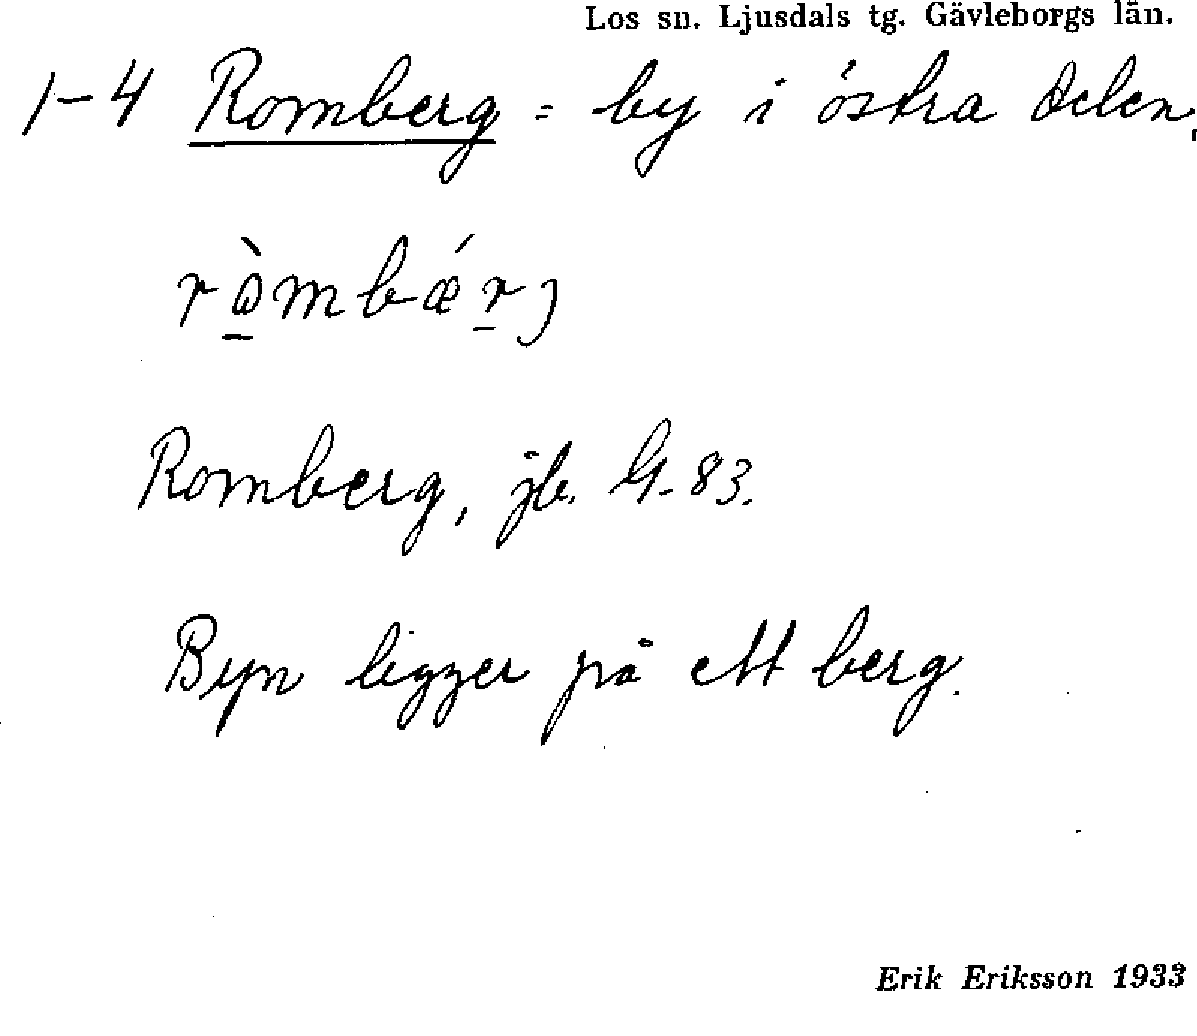 Los sn. Ljusdals tg. Gävleborgs län.
1-4 Romberg = by i östra delen,
ròmbǽrj
Romberg, jb.
83.
Byn ligger på ett berg.
Erik Eriksson 1933